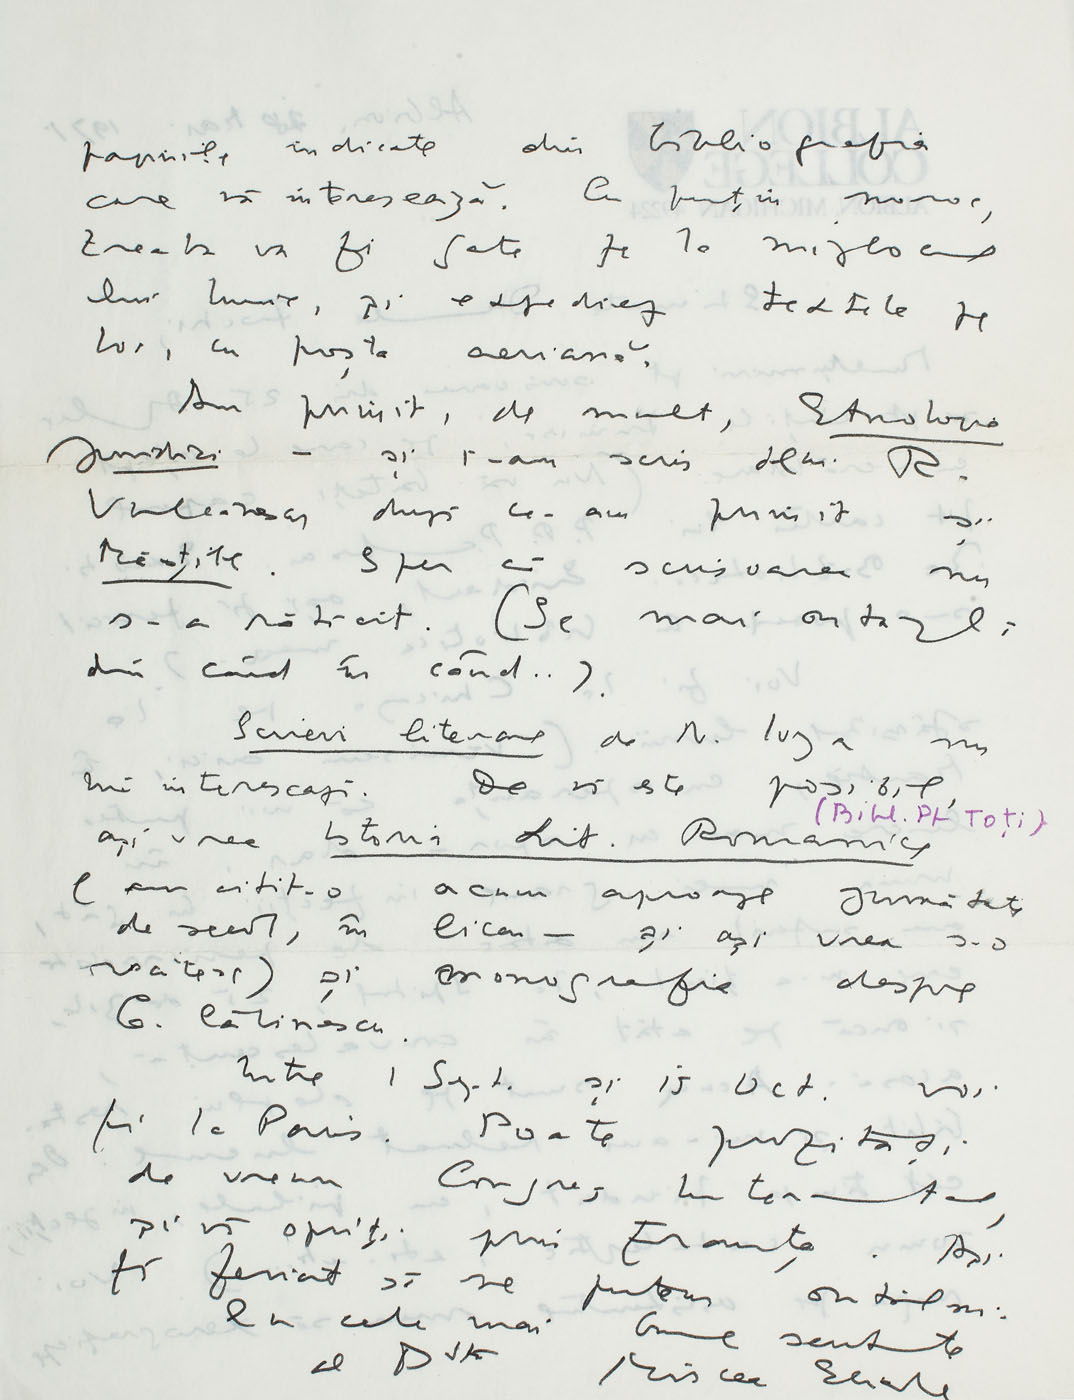 paginile indicate din bibliografia
care vă interesează. Cu puțin noroc,
treaba va fi gata pe la mijlocul
lui Iunie, și expediez textele pe
loc, cu poșta aeriană.
Am primit, de mult, Etnologia
Juridică – și i-am scris dlui R.
Vulcănescu după ce-am primit și
Măștile. Sper că scrisoarea nu
s-a rătăcit. (Se mai întâmplă
din când în când..).
Scrieri literare de N. Iorga nu
mă interesează. De vă este posibil,
(Bibl. Pt Toți)
ași vrea Istoria Lit. Românice
(am citit-o acum aproape jumătate
de secol, în liceu – și ași vrea s-o
recitesc) și monografia despre
G. Călinescu.
Între 1 Sept. și 15 Oct. voi
fi la Paris. Poate profitați
de vreun Congres Internațional,
și vă opriți prin Franța. Ași
fi fericit să ne putem întâlni.
Cu cele mai bune sentimente
al Dvs
Mircea Eliade